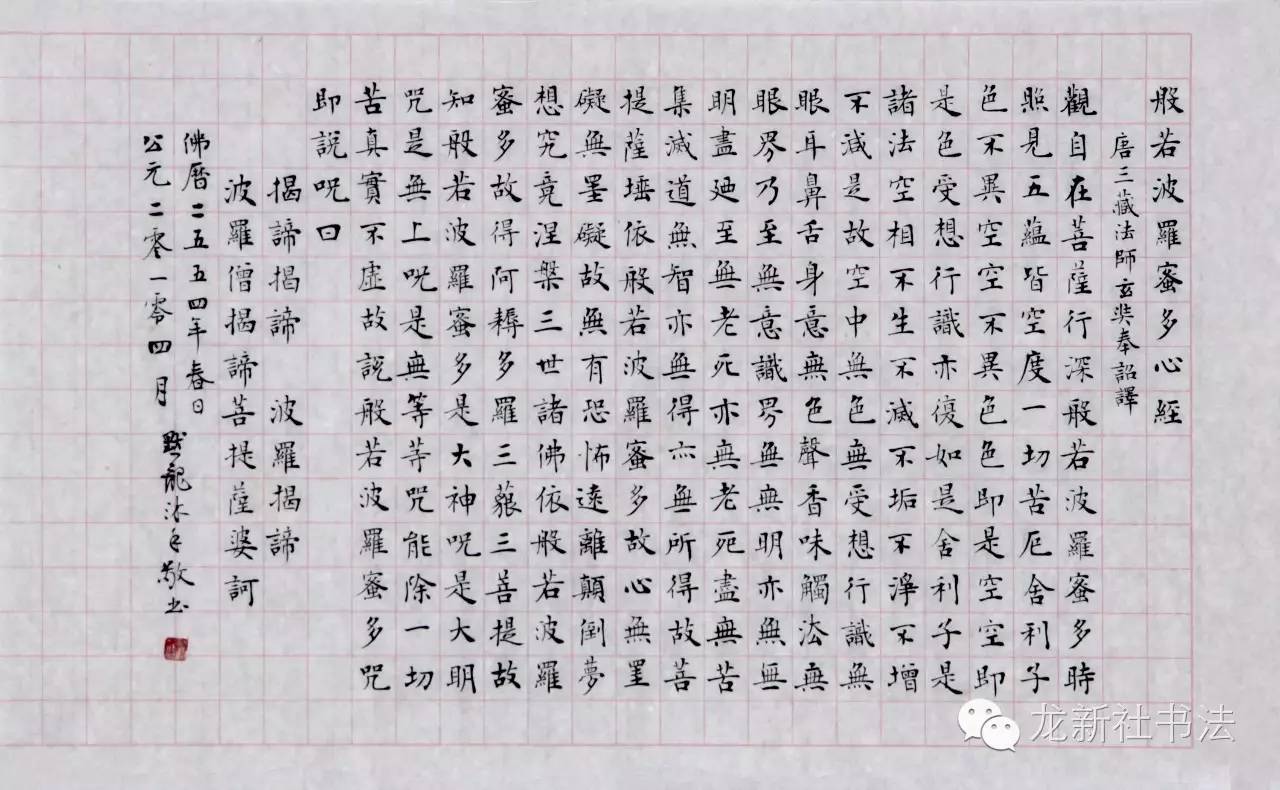 般若波羅蜜多心經
唐三藏法師玄奘奉詔譯
觀自在菩薩行深般若波羅蜜多時
照見五蘊皆空度一切苦厄舍利子
色不異空空不異色色即是空空即
是色受想行識亦復如是舍利子是
諸法空相不生不滅不垢不淨不增
不減是故空中無色無受想行識無
眼耳鼻舌身意無色聲香味觸法無
眼界乃至無意識界無無明亦無無
明盡廼至無老死亦無老死盡無苦
集滅道無智亦無得亦無所得故菩
提薩埵依般若波羅蜜多故心無罣
礙無罣礙故無有恐怖遠離顛倒夢
想究竟涅槃三世諸佛依般若波羅
蜜多故得阿耨多羅三藐三菩提故
知般若波羅蜜多是大神呪是大明
咒是無上呪是無等等咒能除一切
苦真實不虛故說般若波羅蜜多咒
即說呪曰
揭諦揭諦 波羅揭諦
波羅僧揭諦菩提薩婆訶
佛曆二五五四年春日
公元二零一零四月 默龍沐手敬书
龙新社书法